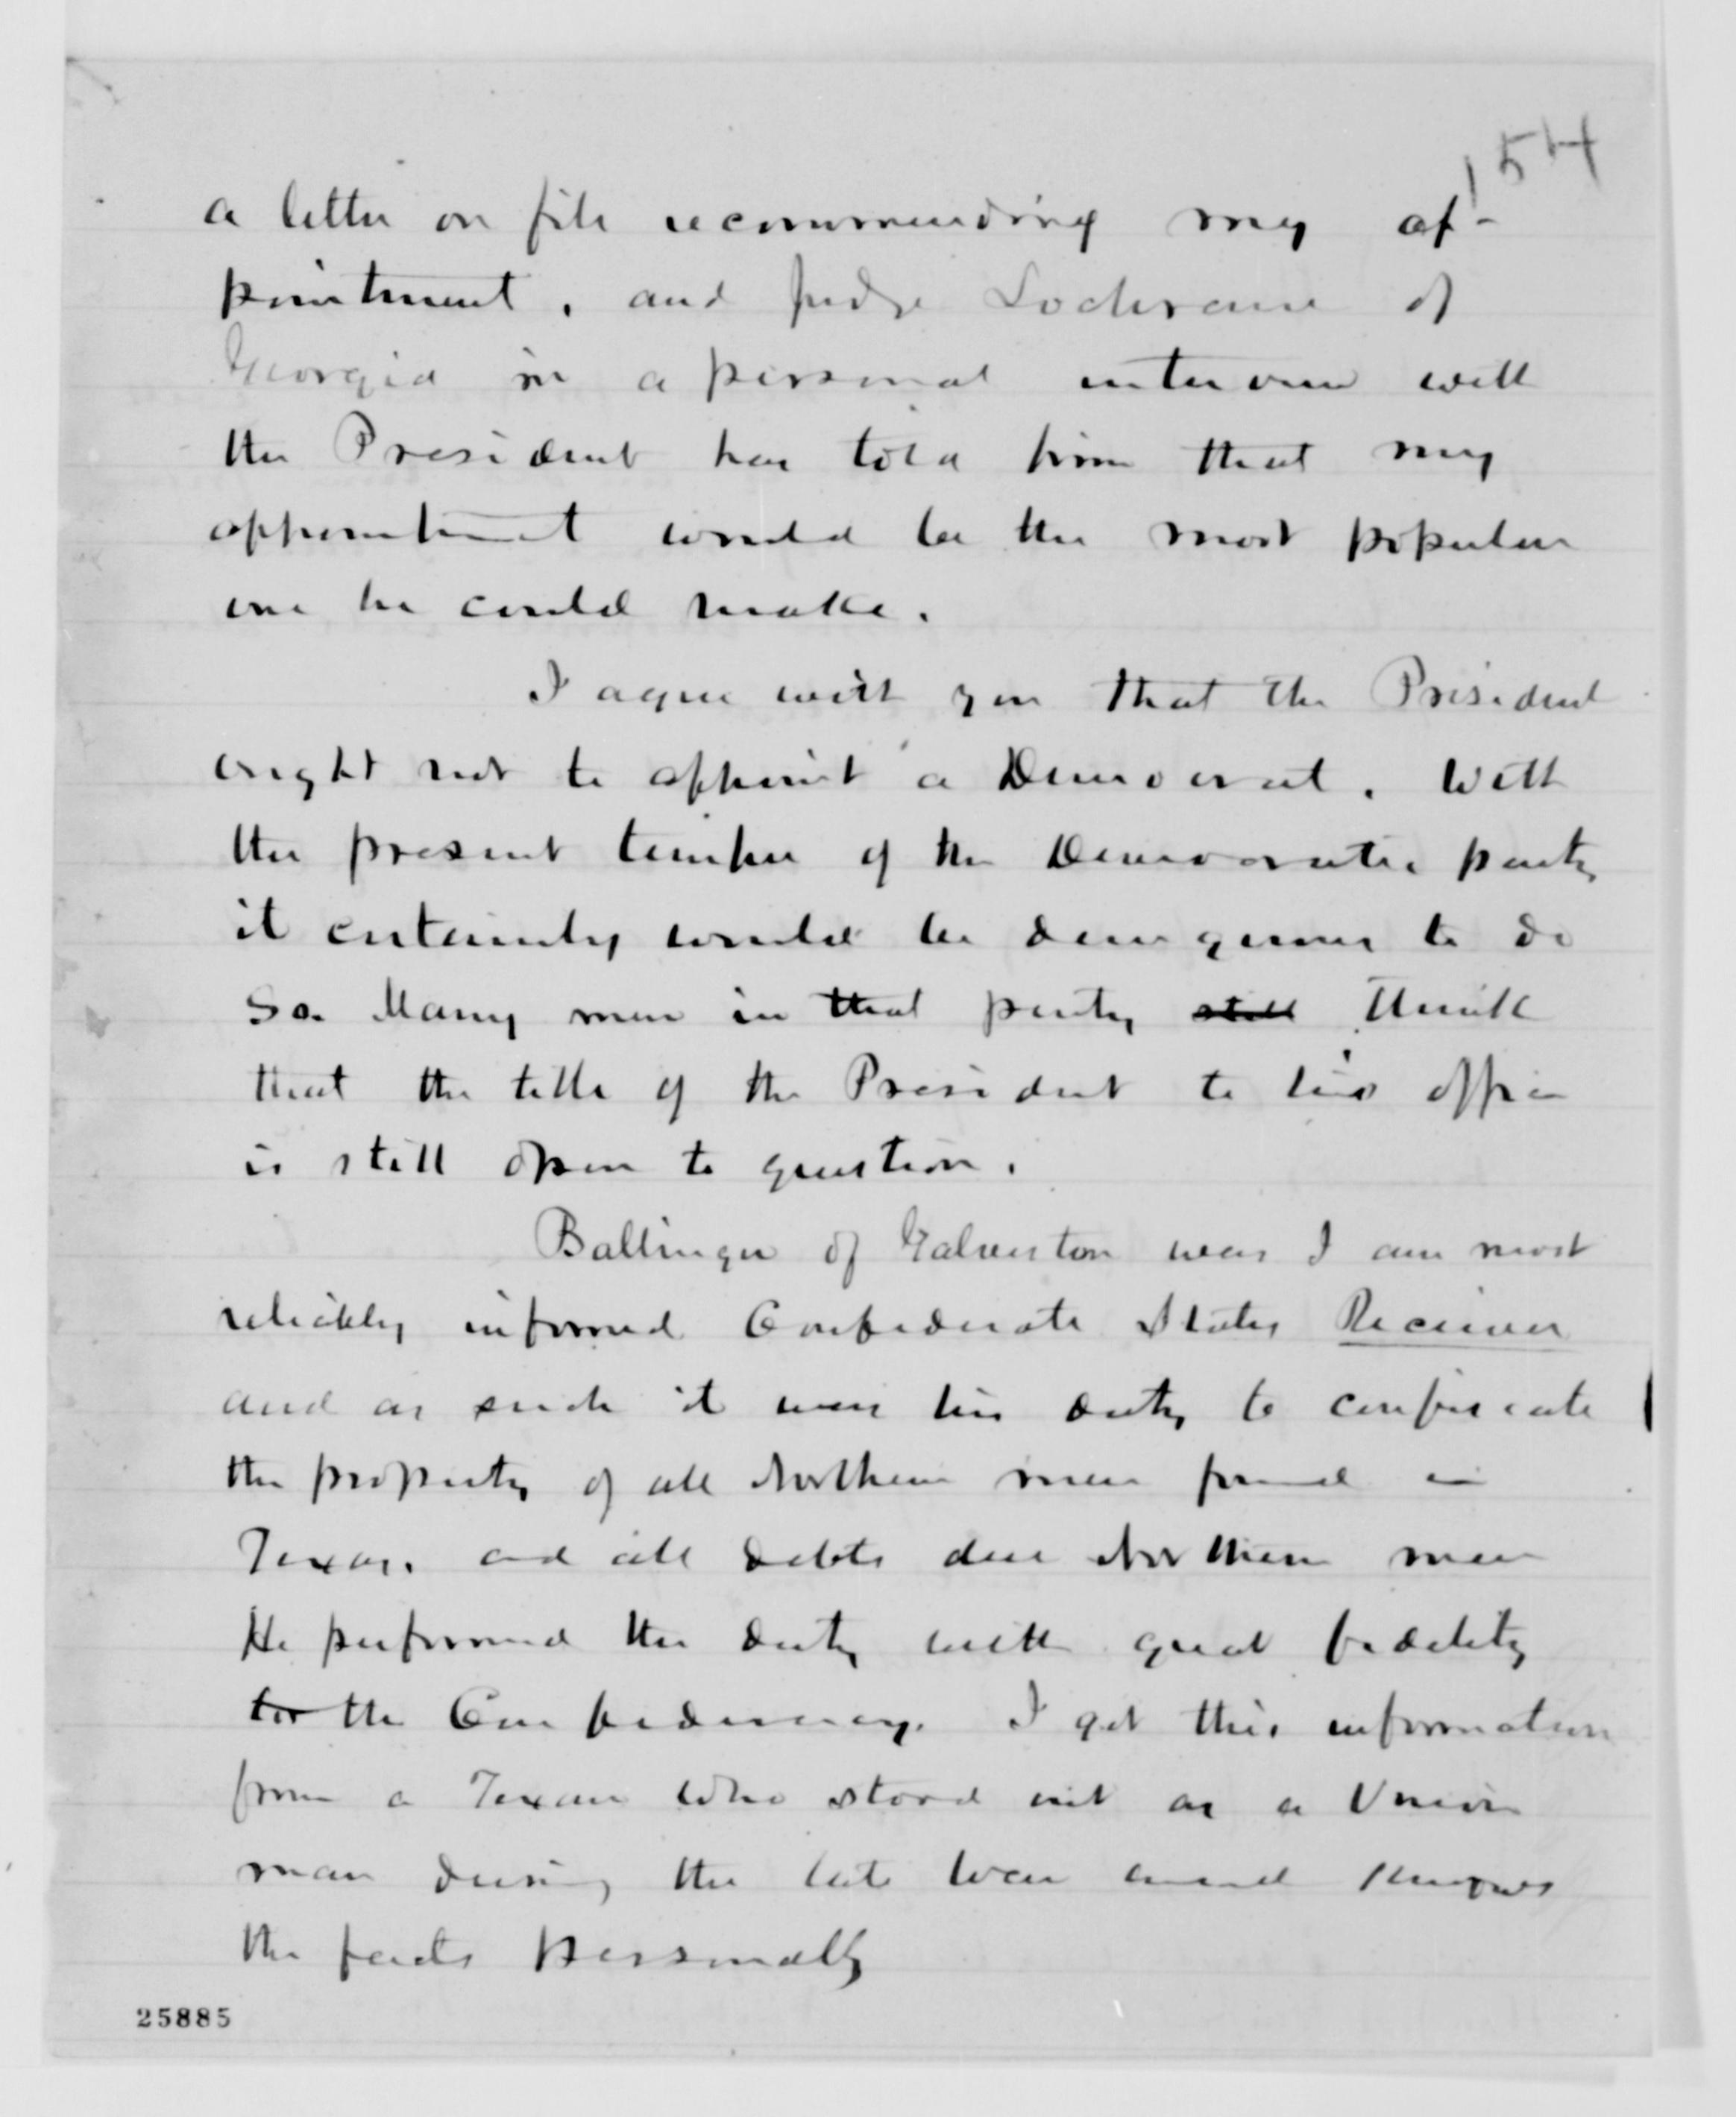 154
a letter on file recommending my ap-
pointment, and Judge Lochrane of
Georgia in a personal interview with
the President has told him that my
appointment would be the most popular
one he could make.
I agree with you that the President
ought not to appoint a Democrat. With
the present temper of the Democratic party
it certainly would be dangerous to do
so. Many men in that party still think
that the title of the President to his office
is still open to question.
Ballinger of Galveston was I am most
reliably informed Confederate States Receiver
and as such it was his duty to confiscate
the property of all Northern men found in
Texas, and all debts due Northern men
He performed the duty with great fidelity
to the Confederacy. I get this information
from a Texan who stood out as a Union
man during the late war and knows
the facts personally
25885